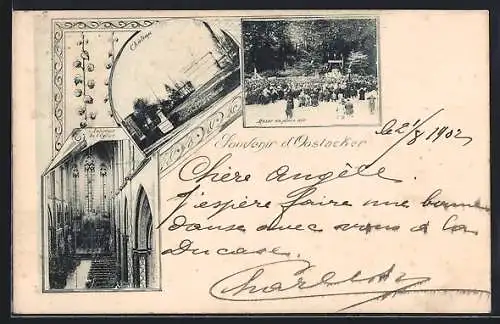 Chateau
Intérieur
de l'église
Messe en plein air
Souvenir d'Oostacker
le 21/8 1902
Chère Angèle.
J'espère faire une bonne
danse avec vous à la
Ducasse.